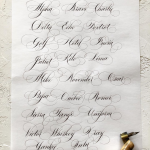 Alpha Bravo Charlie
Delta Echo Foxtrot
Golf Hotel India
Juliet Kilo Lima
Mike November Oscar
Papa Quebec Romeo
Sierra Tango Uniform
Victor Whiskey X-ray
Yankee Zulu